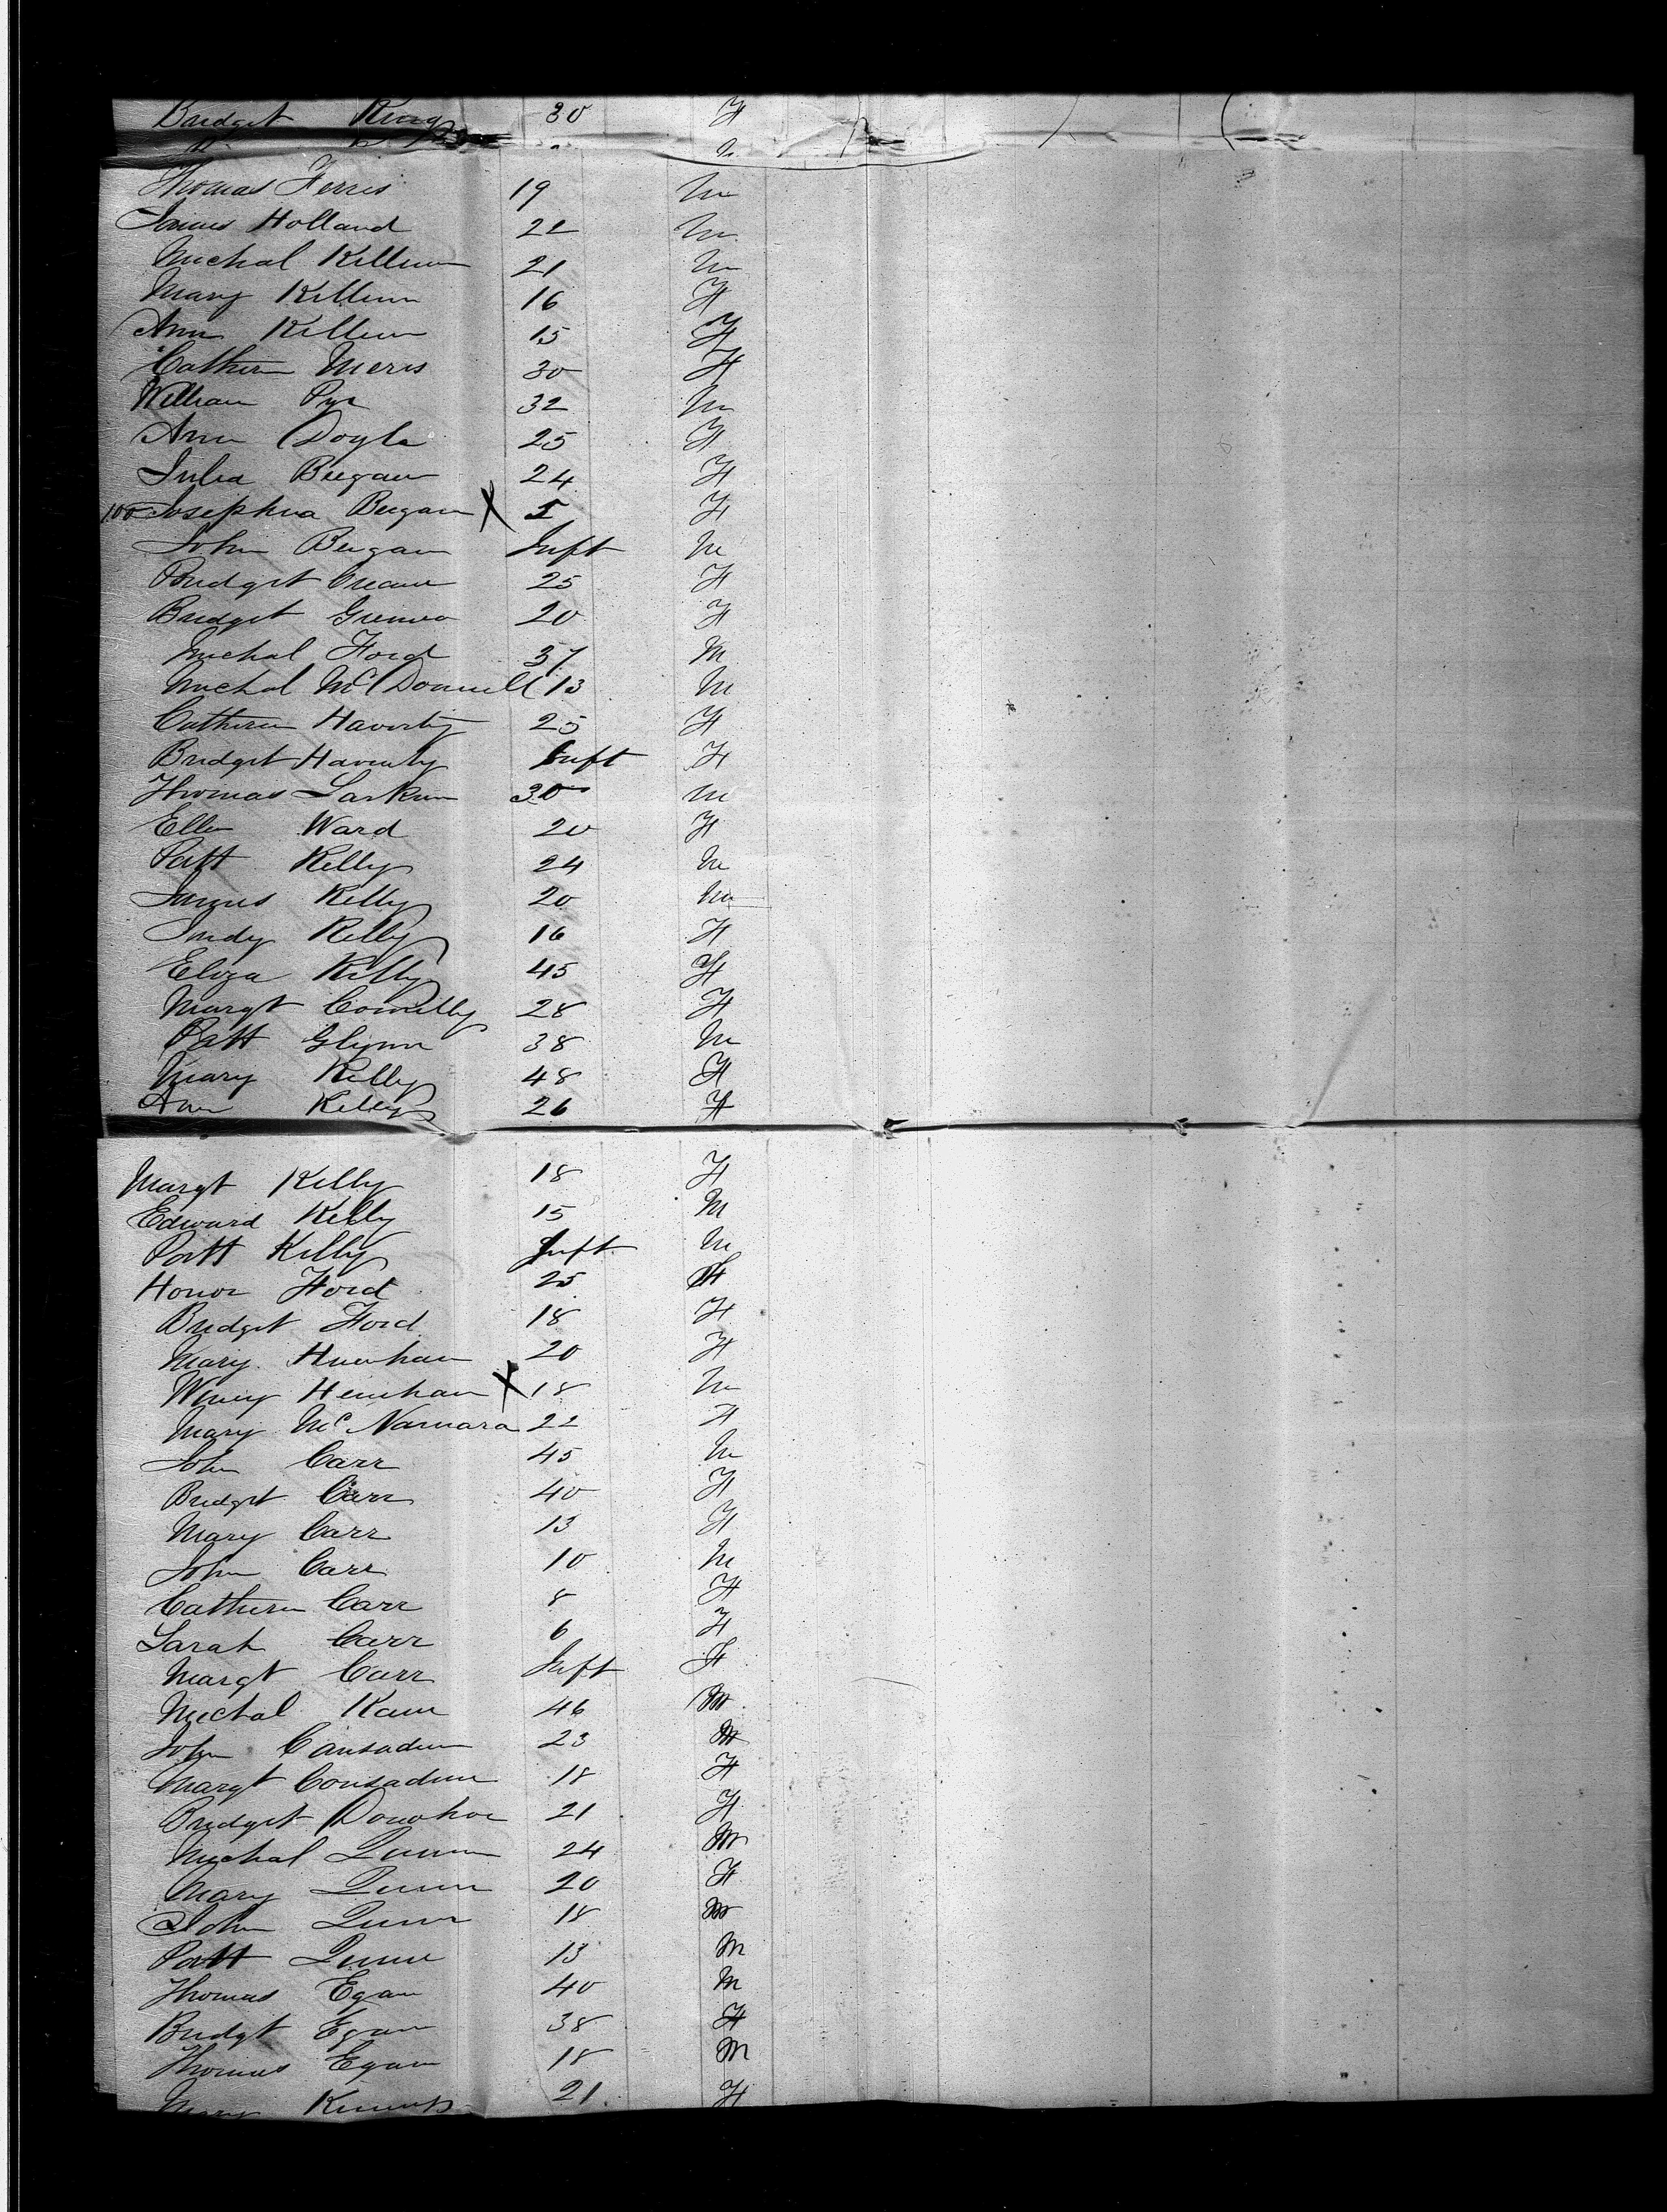 Bridget King 30 F
Thomas Ferris 19 M
James Holland 22 M
Michal Killeen 21 M
Mary Killeen 16 F
Ann Killeen 15 F
Cathern Meris 30 F
William Pye 32 M
Ann Doyle 25 F
Julia Beegan 24 F
100 Josephua Beegan X 5 F
John Beegan Inft M
Bridget 25 F
Bridget 20 F
Michal Ford 37 M
Michal McDonnell 13 M
Cathern Haverty 25 F
Bridget Haverty Inft F
Thomas Larkin 30 M
Ellen Ward 20 F
Patt Kelly 24 M
James Kelly 20 M
Judy Kelly 16 F
Eliza Kelly 45 F
Margt Connelly 28 F
Patt Glynn 38 M
Mary Kelly 48 F
Ann Kelly 26 F
Margt Kelly 18 F
Edward Kelly 15 M
Patt Kelly Inft M
Honor Ford 25 F
Bridget Ford 18 F
Mary Henehan 20 F
Winey Henehan X 18 M
Mary McNamara 22 F
John Carr 45 M
Bridget Carr 40 F
Mary Carr 13 F
John Carr 10 M
Cathern Carr 8 F
Sarah Carr 6 F
Margt Carr Inft F
Michal Kane 46 M
John Cansadine 23 M
Margt Consadine 18 F
Bridget Donohoe 21 F
Michal Quinn 24 M
Mary Quinn 20 F
John Quinn 18 M
Patt Quinn 13 M
Thomas Egan 40 M
Bridgt Egan 38 F
Thomas Egan 18 M
Mary 21 F